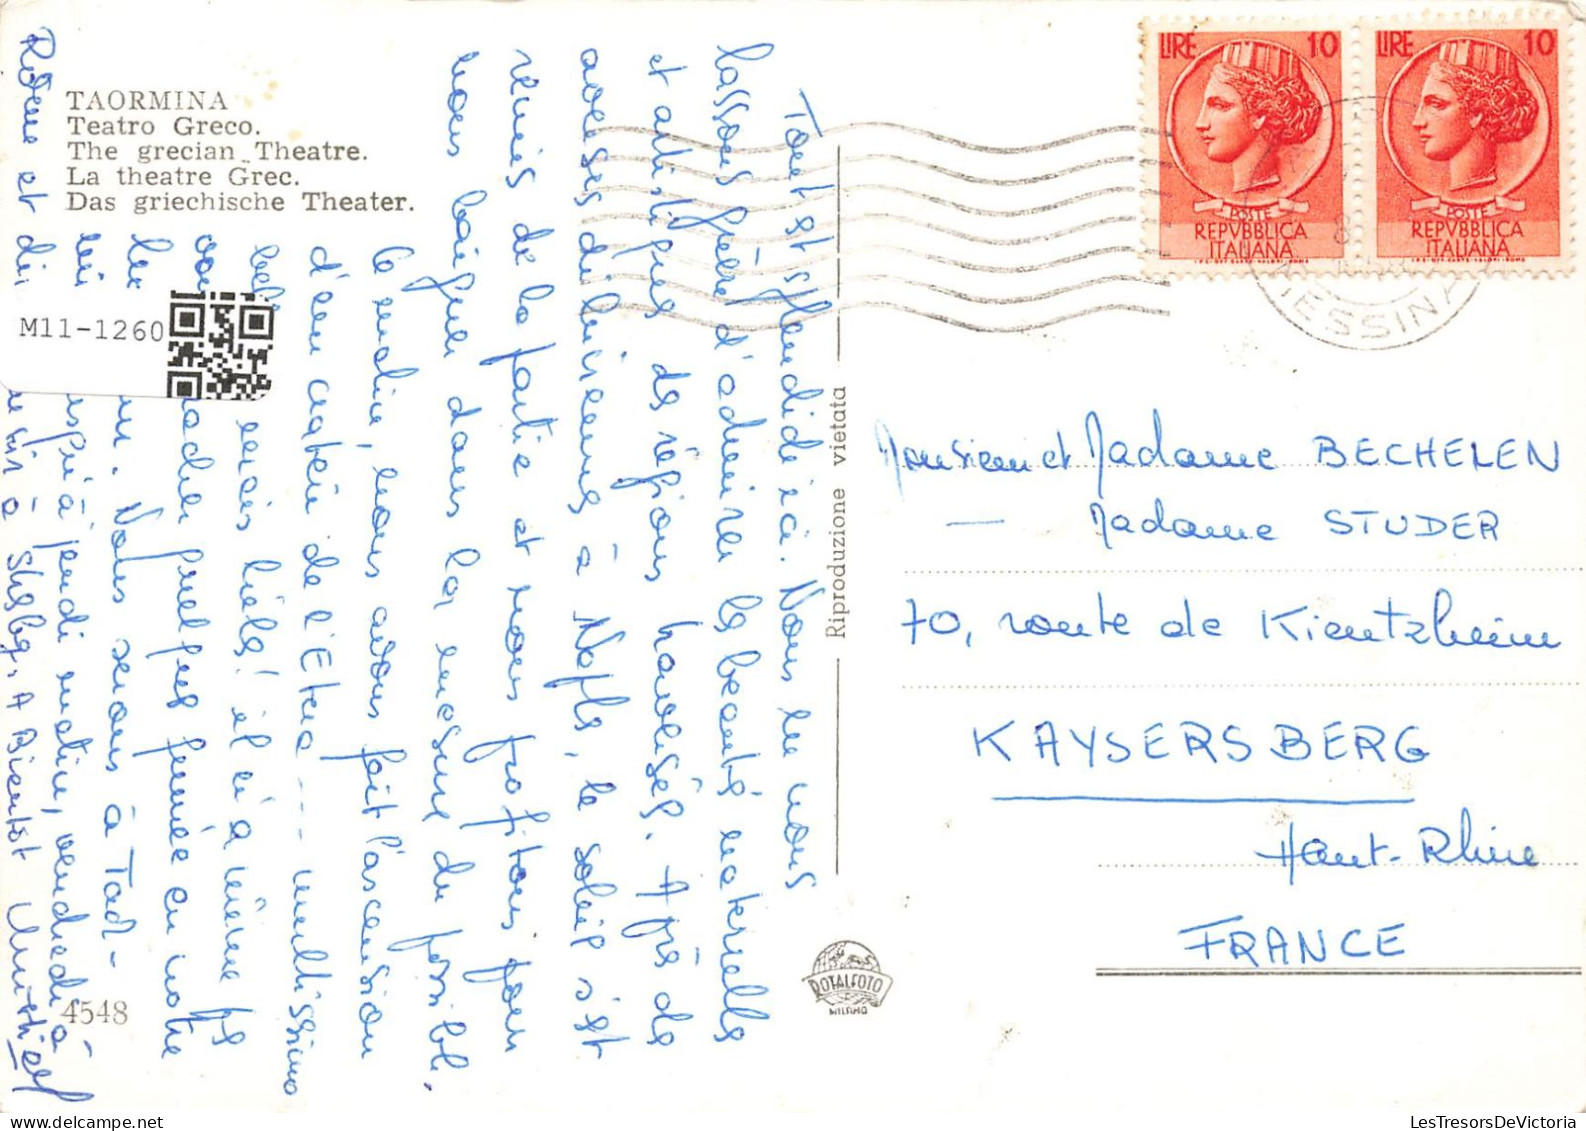 TAORMINA
Teatro Greco.
The grecian Theatre.
La theatre Grec.
Das griechische Theater.
M11-1260
4548
Tout est splendide ici. Nous ne nous
lassons guère d'admirer les beautés naturelles
et artistiques de régions havrisés. Après de
averses diluviennes à Napls, le soleil s'est
remis de la partie et nous profitons pour
nous baigner dans la mesure du possible.
Ce matin, nous avons fait l'ascension
d'un cratère de l'Etna --- multissimo
bell mais hélas! il n'a même ps
quelques fumée en notre
Nous serons à Taor-
jusqu'à jendi matin, vendredi à
Rome et di
à Stsbg. A Bientôt
Riproduzione vietata
ROTALFOTO
MILANO
LIRE 10
POSTE
REPVBBLICA
ITALIANA
LIRE 10
POSTE
REPVBBLICA
ITALIANA
MESSINA
Monsieur et Madame BECHELEN
— Madame STUDER
70, route de Kientzheim
KAYSERSBERG
Haut-Rhin
FRANCE
LesTresorsDeVictoria